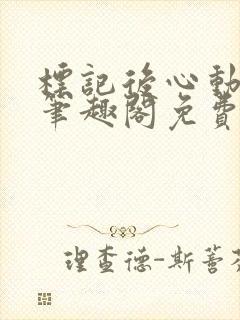 標記後心動
筆趣閣免費
理查德-斯蒈芬